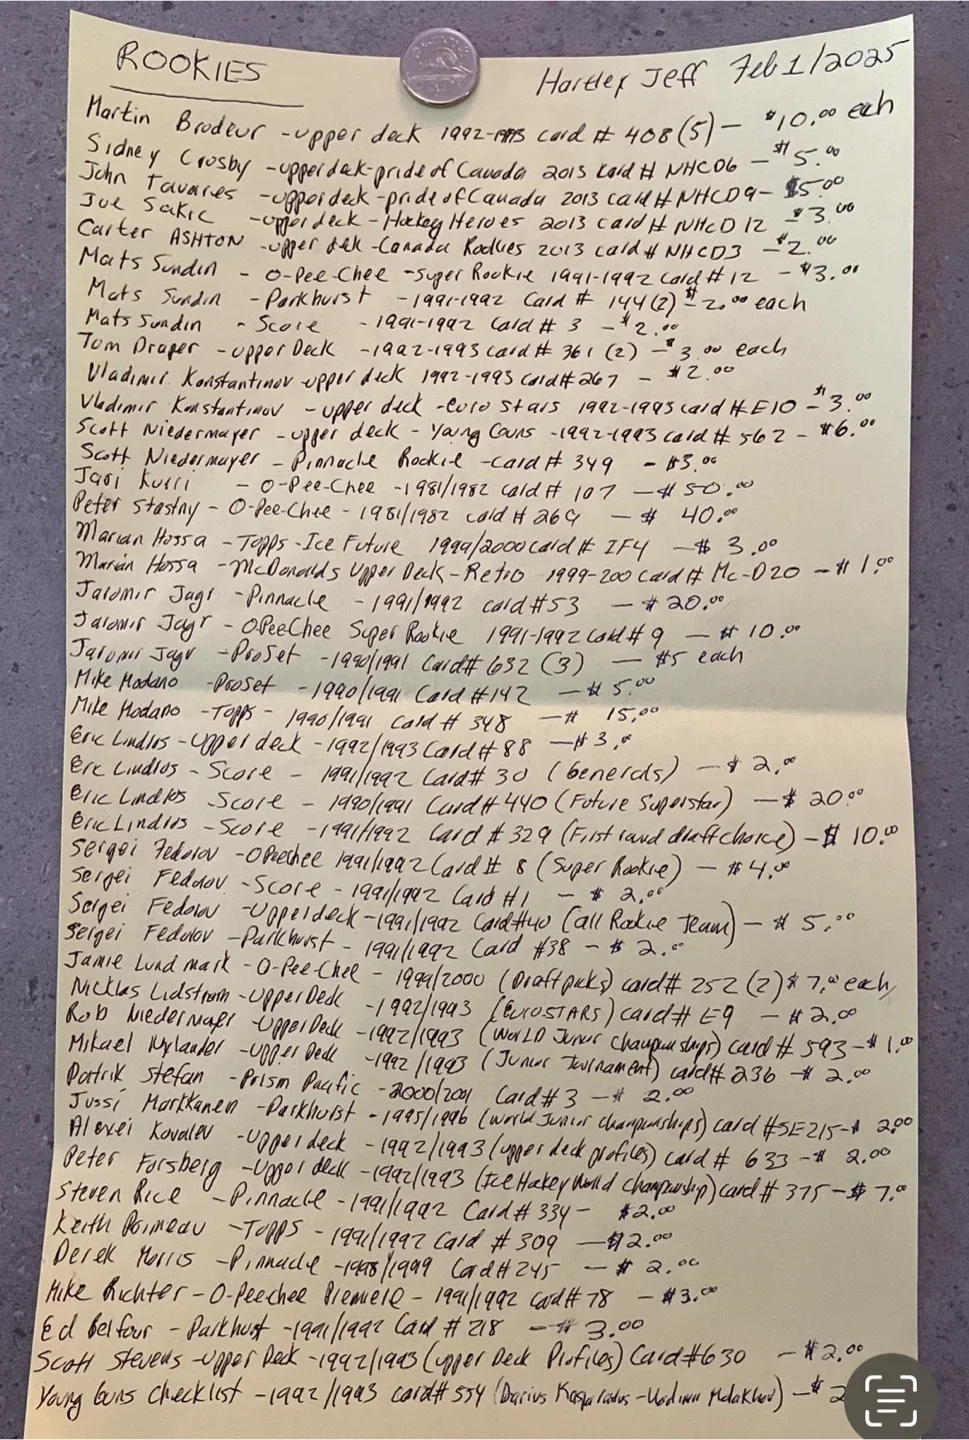 ROOKIES
Hartlex Jeff Feb 1/2025
Martin Brodeur - upper deck 1992-1993 card # 408 (5) - $10.00 each
Sidney Crosby - upper deck - pride of Canada 2013 card # NHCD6 - $5.00
John Tavares - upper deck - pride of Canada 2013 card # NHCD9 - $5.00
Joe Sakic - upper deck - Hockey Heroes 2013 card # NHCD 12 - $3.00
Carter ASHTON - upper dek - Canada Rookies 2013 card # NHCD3 - $2.00
Mats Sundin - O-Pee-Chee - Super Rookie 1991-1992 card # 12 - $3.00
Mats Sundin - Parkhurst - 1991-1992 Card # 144 (2) - $2.00 each
Mats Sundin - Score - 1991-1992 Card # 3 - $2.00
Tom Draper - upper Deck - 1992-1993 card # 361 (2) - $3.00 each
Vladimir Konstantinov - upper deck 1992-1993 card # 267 - $2.00
Vladimir Konstantinov - upper deck - euro stars 1992-1993 card # E10 - $3.00
Scott Niedermayer - upper deck - Young Guns - 1992-1993 card # 562 - $6.00
Scott Niedermayer - Pinnacle Rookie - card # 349 - $3.00
Jari Kurri - O-Pee-Chee - 1981/1982 card # 107 - $50.00
Peter Stastny - O-Pee-Chee - 1981/1982 card # 269 - $ 40.00
Marian Hossa - Topps - Ice Future 1999/2000 card # IF4 - $ 3.00
Marian Hossa - McDonalds Upper Deck - Retro 1999-200 card # Mc-D20 - $ 1.00
Jaromir Jagr - Pinnacle - 1991/1992 card #53 - $20.00
Jaromir Jagr - OPeeChee Super Rookie 1991-1992 card # 9 - $ 10.00
Jaromir Jagr - ProSet - 1990/1991 Card # 632 (3) - $5 each
Mike Modano - ProSet - 1990/1991 Card #142 - $ 5.00
Mike Modano - Topps - 1990/1991 card # 348 - $ 15.00
Eric Lindros - Upper deck - 1992/1993 Card # 88 - $3.00
Eric Lindros - Score - 1991/1992 Card # 30 (Generals) - $ 2.00
Eric Lindros Score - 1990/1991 Card # 440 (Future Superstar) - $ 20.00
Eric Lindros - Score - 1991/1992 Card # 329 (First round draft choice) - $ 10.00
Sergei Fedorov - OPeechee 1991/1992 Card # 8 (Super Rookie) - $4.00
Sergei Fedorov - Score - 1991/1992 Card #1 - $ 2.00
Sergei Fedorov - Upper deck - 1991/1992 Card #40 (All Rookie Team) - $ 5.00
Sergei Fedorov - Parkhurst - 1991/1992 Card #38 - $ 2.00
Jamie Lundmark - O-Pee-Chee - 1999/2000 (Draft picks) card # 252 (2) $ 7.00 each
Nicklas Lidstrom - Upper Deck - 1992/1993 (EuroSTARS) card # E9 - $2.00
Rob Niedermayer - Upper Deck - 1992/1993 (WORLD Junior Championships) card # 593 - $1.00
Mikael Nylander - Upper Deck - 1992/1993 (Junior Tournament) card # 236 - $ 2.00
Patrik Stefan - Prism Pacific - 2000/2001 Card # 3 - $ 2.00
Jussi Markkanen - Parkhurst - 1995/1996 (World Junior Championships) card #SE215 - $ 2.00
Alexei Kovalev - Upper deck - 1992/1993 (upper deck profiles) card # 633 - $ 2.00
Peter Forsberg - Upper deck - 1992/1993 (Ice Hockey World Championship) card # 375 - $ 7.00
Steven Rice - Pinnacle - 1991/1992 Card # 334 - $2.00
Keith Primeau - Topps - 1991/1992 Card # 309 - $2.00
Derek Morris - Pinnacle - 1998/1999 Card # 245 - $ 2.00
Mike Richter - O-Peechee Premiere - 1991/1992 Card # 78 - $3.00
Ed Belfour - Parkhust - 1991/1992 Card # 218 - $ 3.00
Scott Stevens - Upper Deck - 1992/1993 (upper Deck Profiles) Card #630 - $2.00
Young Guns Checklist - 1992/1993 card # 554 (Darius Kasparaitus - Vladimir Malakhov) - $ 2